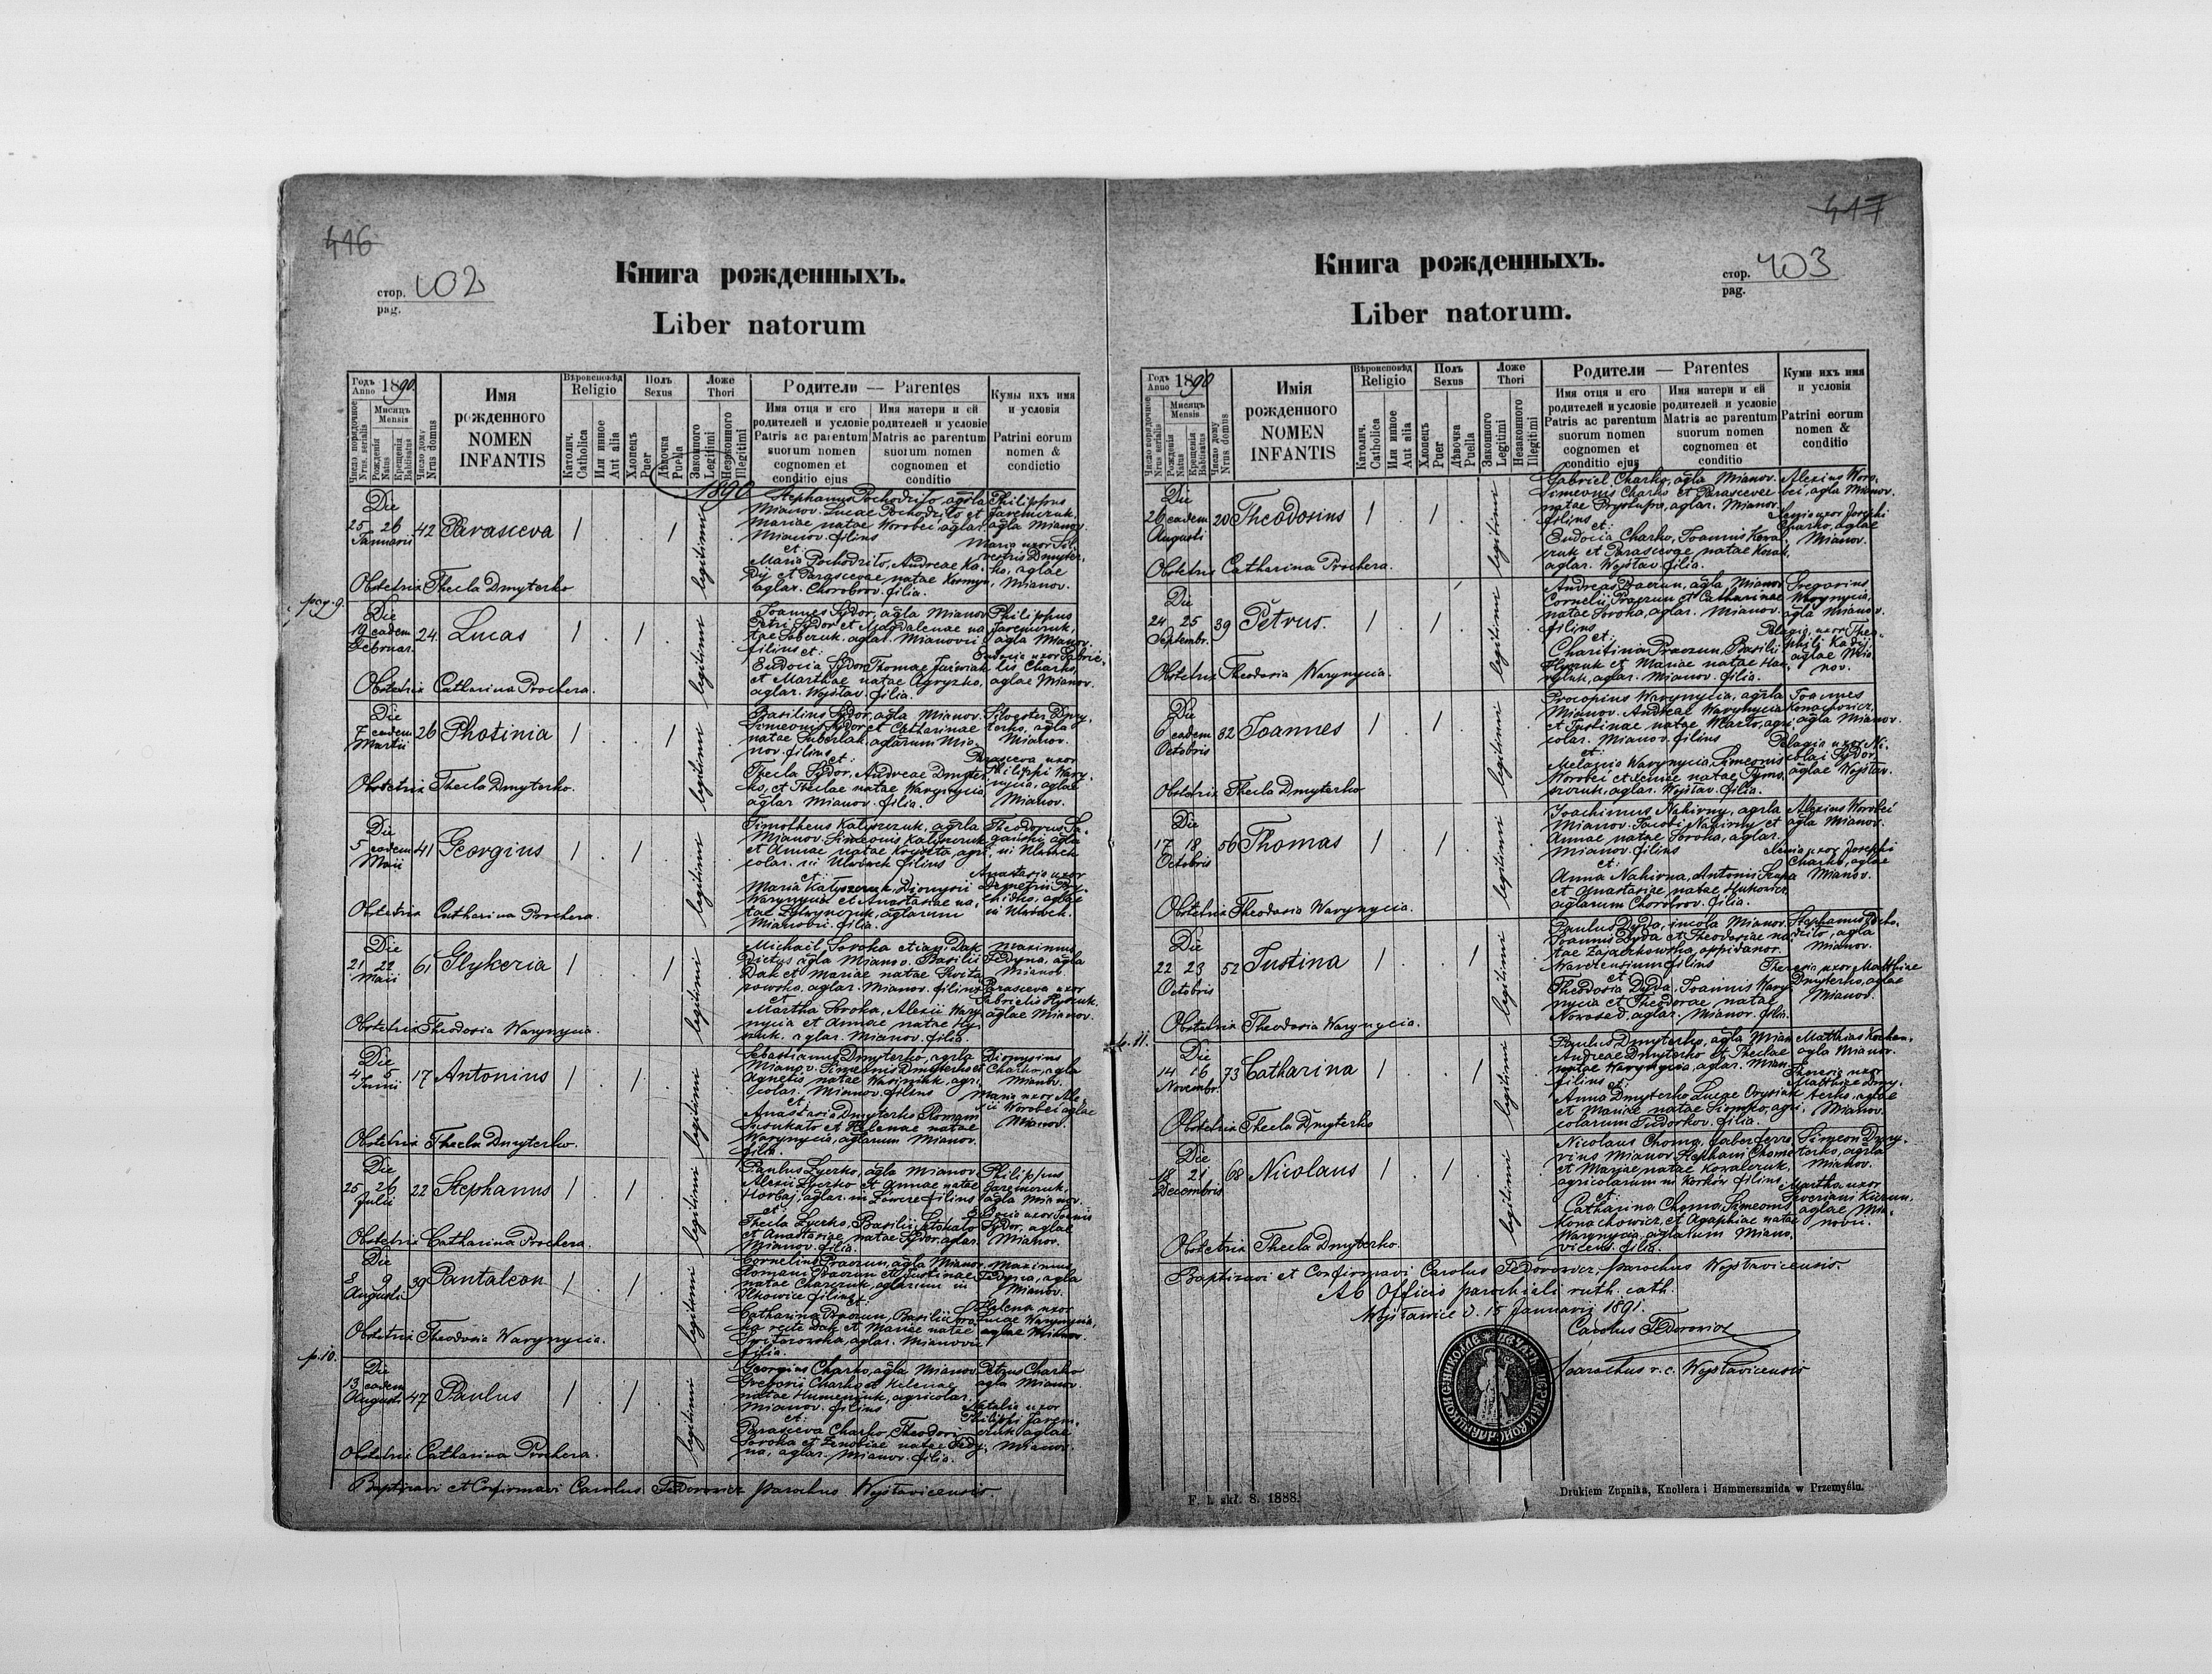 416
стор. 102
pag.
Книга рожденныхъ.
Liber natorum
Годъ Anno 1890.
Число порядочное Nrus serialis
Мисяць Mensis
Рождення Natus
Крещенія Babtisatus
Число дому Nrus domus
Имя рожденного
NOMEN INFANTIS
Вѣроисповѣд Religio
Католич. Catholica
Или инное Aut alia
Полъ Sexus
Хлопець Puer
Дѣвочка Puella
Ложе Thori
Законного Legitimi
Незаконного Illegitimi
Родители — Parentes
Имя отця и его родителей и условіе
Patris ac parentum suorum nomen cognomen et conditio ejus
Имя матери и ей родителей и условіе
Matris ac parentum suorum nomen cognomen et conditio
Кумы ихъ имя и условія
Patrini eorum nomen & condictio
1890
Die
25 26 42 Parasceva 1 . . 1 legitimi
Januarii
Stephanus Pochodziło, agrla
Mianov. Lucae Pochodziło et
Mariae natae Worobei aglar.
Mianov. filius
et:
Maria Pochodziło, Andreae
et Parascevae natae
aglar. Chorobrov. filia.
Philippus
Jaremczuk,
agla Mianov.
Maria uxor
Dmyter-
ko, aglae
Mianov.
Obstetrix Thecla Dmyterko
pag. 9.
Die
19 eadem 24. Lucas 1 . 1 . legitimi
Februar.
Joannes Sydor, agla Mianov.
Petri Sydor et Magdalenae na
tae aglar. Mianovii
filius et:
Eudocia Sydor Thomae
et Marthae natae Agryzko,
aglar. Wojsław. filia.
Philippus
Jaremczuk,
agla Mianov.
Eudocia uxor Gabrie-
lis Charko,
aglae Mianov.
Obstetrix Catharina Prochera.
Die
7 eadem 26 Photinia 1 . . 1 legitimi
Martii
Basilius Sydor, agla Mianov.
Simeonis Sydor et Catharinae
natae aglarum Mia-
nov. filius et:
Thecla Sydor, Andreae Dmyter-
ko, et Theclae natae Warynycia
aglar. Mianov. filia.
Silvester Dmy-
terko, agla
Mianov.
Parasceva uxor
Philippi Wary-
nycia, aglae
Mianov.
Obstetrix Thecla Dmyterko.
Die
5 eadem 41 Georgius 1 . 1 . legitimi
Maii
Timotheus Katyszczuk, agrla
Mianov. Simeonis
et Annae natae agri-
colar. in filius
et:
Maria Dionysii
Warynycia et Anastasiae na-
tae aglarum
Mianovii. filia.
Theodorus
agla
in
Anastasia uxor
Demetrii
aglae
in
Obstetrix Catharina Prochera.
Die
21 22 61 Glykeria 1 . . 1 legitimi
Maii
Michail Soroka etiam Dak
dictus agla Mianov. Basilii
Dak et Mariae natae Swita-
rowska, aglar. Mianov. filius
et
Martha Soroka, Alexii Wary-
nycia et Annae natae Hy-
szuk, aglar. Mianov. filia.
Maximus
Fedyna, agla
Mianov.
Parasceva uxor
Gabrielis
aglae Mianov.
Obstetrix Theodosia Warynycia.
Die
4 5 17 Antonius 1 . 1 . legitimi
Junii
Sebastianus Dmyterko, agrla
Mianov. Simeonis Dmyterko et
Agnetis natae agri-
colar. Mianov. filius
et:
Anastasia Dmyterko Romani
et Helenae natae
Warynycia, aglarum Mianov.
filia.
Dionysius
Charko, agla
Mianov.
Maria uxor Ale-
xii Worobei aglae
Mianov.
Obstetrix Thecla Dmyterko.
Die
25 26 22 Stephanus 1 . 1 . legitimi
Julii
Paulus Lyczko, agla Mianov.
Alexii Lyczko et Annae natae
Horbaj, aglar. in filius
et
Thecla Lyczko, Basilii
et Anastasiae natae Sydor, aglar.
Mianov. filia.
Philippus
Jaremczuk,
agla Mianov.
uxor Joannis
Sydor, aglae
Mianov.
Obstetrix Catharina Prochera.
Die
8 9 39 Pantaleon 1 . 1 . legitimi
Augusti
Cornelius Praczun, agla Mianov.
Romani Praczun et Justinae
natae aglarum in
Ilkowice filius et:
Catharina Praczun, Basilii Soro-
ka recte Dak et Mariae natae
Switarowska, aglar. Mianovii
filia.
Maximus
Fedyna, agla
Mianov.
Helena uxor
Lucae Warynycia,
aglae Mianov.
Obstetrix Theodosia Warynycia.
p. 10.
Die
13 eadem 47 Paulus 1 . 1 . legitimi
Augusti
Georgius Charko, agla Mianov.
Gregorii Charko et Helenae
natae Humeniuk, agricolar.
Mianov. filius
et:
Parasceva Charko, Theodori
Soroka et Zenobiae natae Fedy-
na, aglar. Mianov. filia.
Petrus Charko
agla Mianov.
Natalia uxor
Philippi Jarem-
czuk aglae
Mianov.
Obstetrix Catharina Prochera.
Baptisavi et Confirmavi Carolus Fedorowicz parochus Wojsłavicensis.
417
Книга рожденныхъ.
стор. 403
pag.
Liber natorum.
Годъ Anno 1890
Число порядочное Nrus serialis
Мисяць Mensis
Рождення Natus
Крещенія Babtisatus
Число дому Nrus domus
Имія рожденного
NOMEN INFANTIS
Вѣроисповѣд Religio
Католич. Catholica
Или инное Aut alia
Полъ Sexus
Хлопець Puer
Дѣвочка Puella
Ложе Thori
Законного Legitimi
Незаконного Illegitimi
Родители — Parentes
Имя отця и его родителей и условіе
Patris ac parentum suorum nomen cognomen et conditio ejus
Имя матери и ей родителей и условіе
Matris ac parentum suorum nomen cognomen et conditio
Куми ихъ имя и условія
Patrini eorum nomen & conditio
Die
26 eadem 20 Theodosius 1 . 1 . legitimi
Augusti
Gabriel Charko, agla Mianov.
Simeonis Charko et Parascevae
natae Prystupa, aglar. Mianov.
filius
et:
Eudocia Charko, Joannis Koval-
czuk et Parascevae natae
aglar. Wojsław. filia.
Alexius Woro-
bei, agla Mianov.
Xenia uxor Josephi
Charko, aglae
Mianov.
Obstetrix Catharina Prochera.
Die
24 25 39 Petrus. 1 . 1 . legitimi
Septembr.
Andreas Praczun, agla Mianov.
Cornelii Praczun et Catharinae
natae Soroka, aglar. Mianov.
filius
et:
Charitina Praczun, Basilii
et Mariae natae
aglar. Mianov. filia.
Gregorius
Warynycia,
agla Mianov.
Pelagia, uxor Theo-
phili
aglae Mia-
nov.
Obstetrix Theodosia Warynycia.
Die
6 eadem 32 Joannes 1 . 1 . legitimi
Octobris
Procopius Warynycia, agrla
Mianov. Andreae Warynycia
et Justinae natae agri-
colar. Mianov. filius
et:
Melania Warynycia, Simeonis
Worobei et Xeniae natae Tyms-
aglar. Wojsław. filia.
Joannes
Konachowicz,
agla Mianov.
Pelagia uxor Ni-
colai Sydor,
aglae Wojsław.
Obstetrix Thecla Dmyterko
Die
17 18 56 Thomas 1 . 1 . legitimi
Octobris
Joachimus Nahirny, agrla
Mianov. Jacobi Nahirny et
Annae natae Soroka, aglar.
Mianov. filius
et:
Anna Nahirna, Antonii
et Anastasiae natae Hukowicz
aglarum Chorobrov. filia.
Alexius Worobei
agla Mianov.
Xenia uxor Josephi
Charko, aglae
Mianov.
Obstetrix Theodosia Warynycia.
Die
22 23 52 Justina 1 . . 1 legitimi
Octobris
Paulus Dyda, incola Mianov.
Joannis Dyda et Theodosiae na-
tae Zajaczkowska, oppidanor.
Warezensium filius
et
Theodosia Dyda, Joannis Wary-
nycia et Theodorae natae
Nowosad, aglar. Mianov. filia.
Stephanus Pocho-
dziło, agla
Mianov.
Theresia uxor Matthiae
Dmyterko, aglae
Mianov.
Obstetrix Theodosia Warynycia.
p. 11.
Die
14 16 73 Catharina 1 . . 1 legitimi
Novembr.
Paulus Dmyterko, agla Mian.
Andreae Dmyterko et Theclae
natae Warynycia, aglar. Mian.
filius et:
Anna Dmyterko Lucae
et Mariae natae agri-
colarum Tudorkov. filia.
Matthias
agla Mianov.
Theresia uxor
Matthiae Dmy-
terko, aglae
Mianov.
Obstetrix Thecla Dmyterko
Die
18 21 68 Nicolaus 1 . 1 . legitimi
Decembris
Nicolaus Choma, faber ferra-
rius Mianov. Stephani Choma
et Mariae natae Kovalczuk,
agricolarum in Korków filius
et:
Catharina Choma, Simeonis
Konachowicz, et Agaphiae natae
Warynycia, aglarum Miano-
vicens. filia.
Simeon Dmy-
terko, agrla
Mianov.
Martha uxor
Severiani
aglae Mia-
novii.
Obstetrix Thecla Dmyterko.
Baptisavi et Confirmavi Carolus Fedorowicz, parochus Wojsłavicensis.
Ab Officio parochiali ruth. cath.
Wojsławice d. 15 Januarii 1891.
Carolus Fedorowicz
parochus r. c. Wojsłavicensis
F. 1. skł. 8. 1888.
Drukiem Żupnika, Knollera i Hammerszmida w Przemyślu.